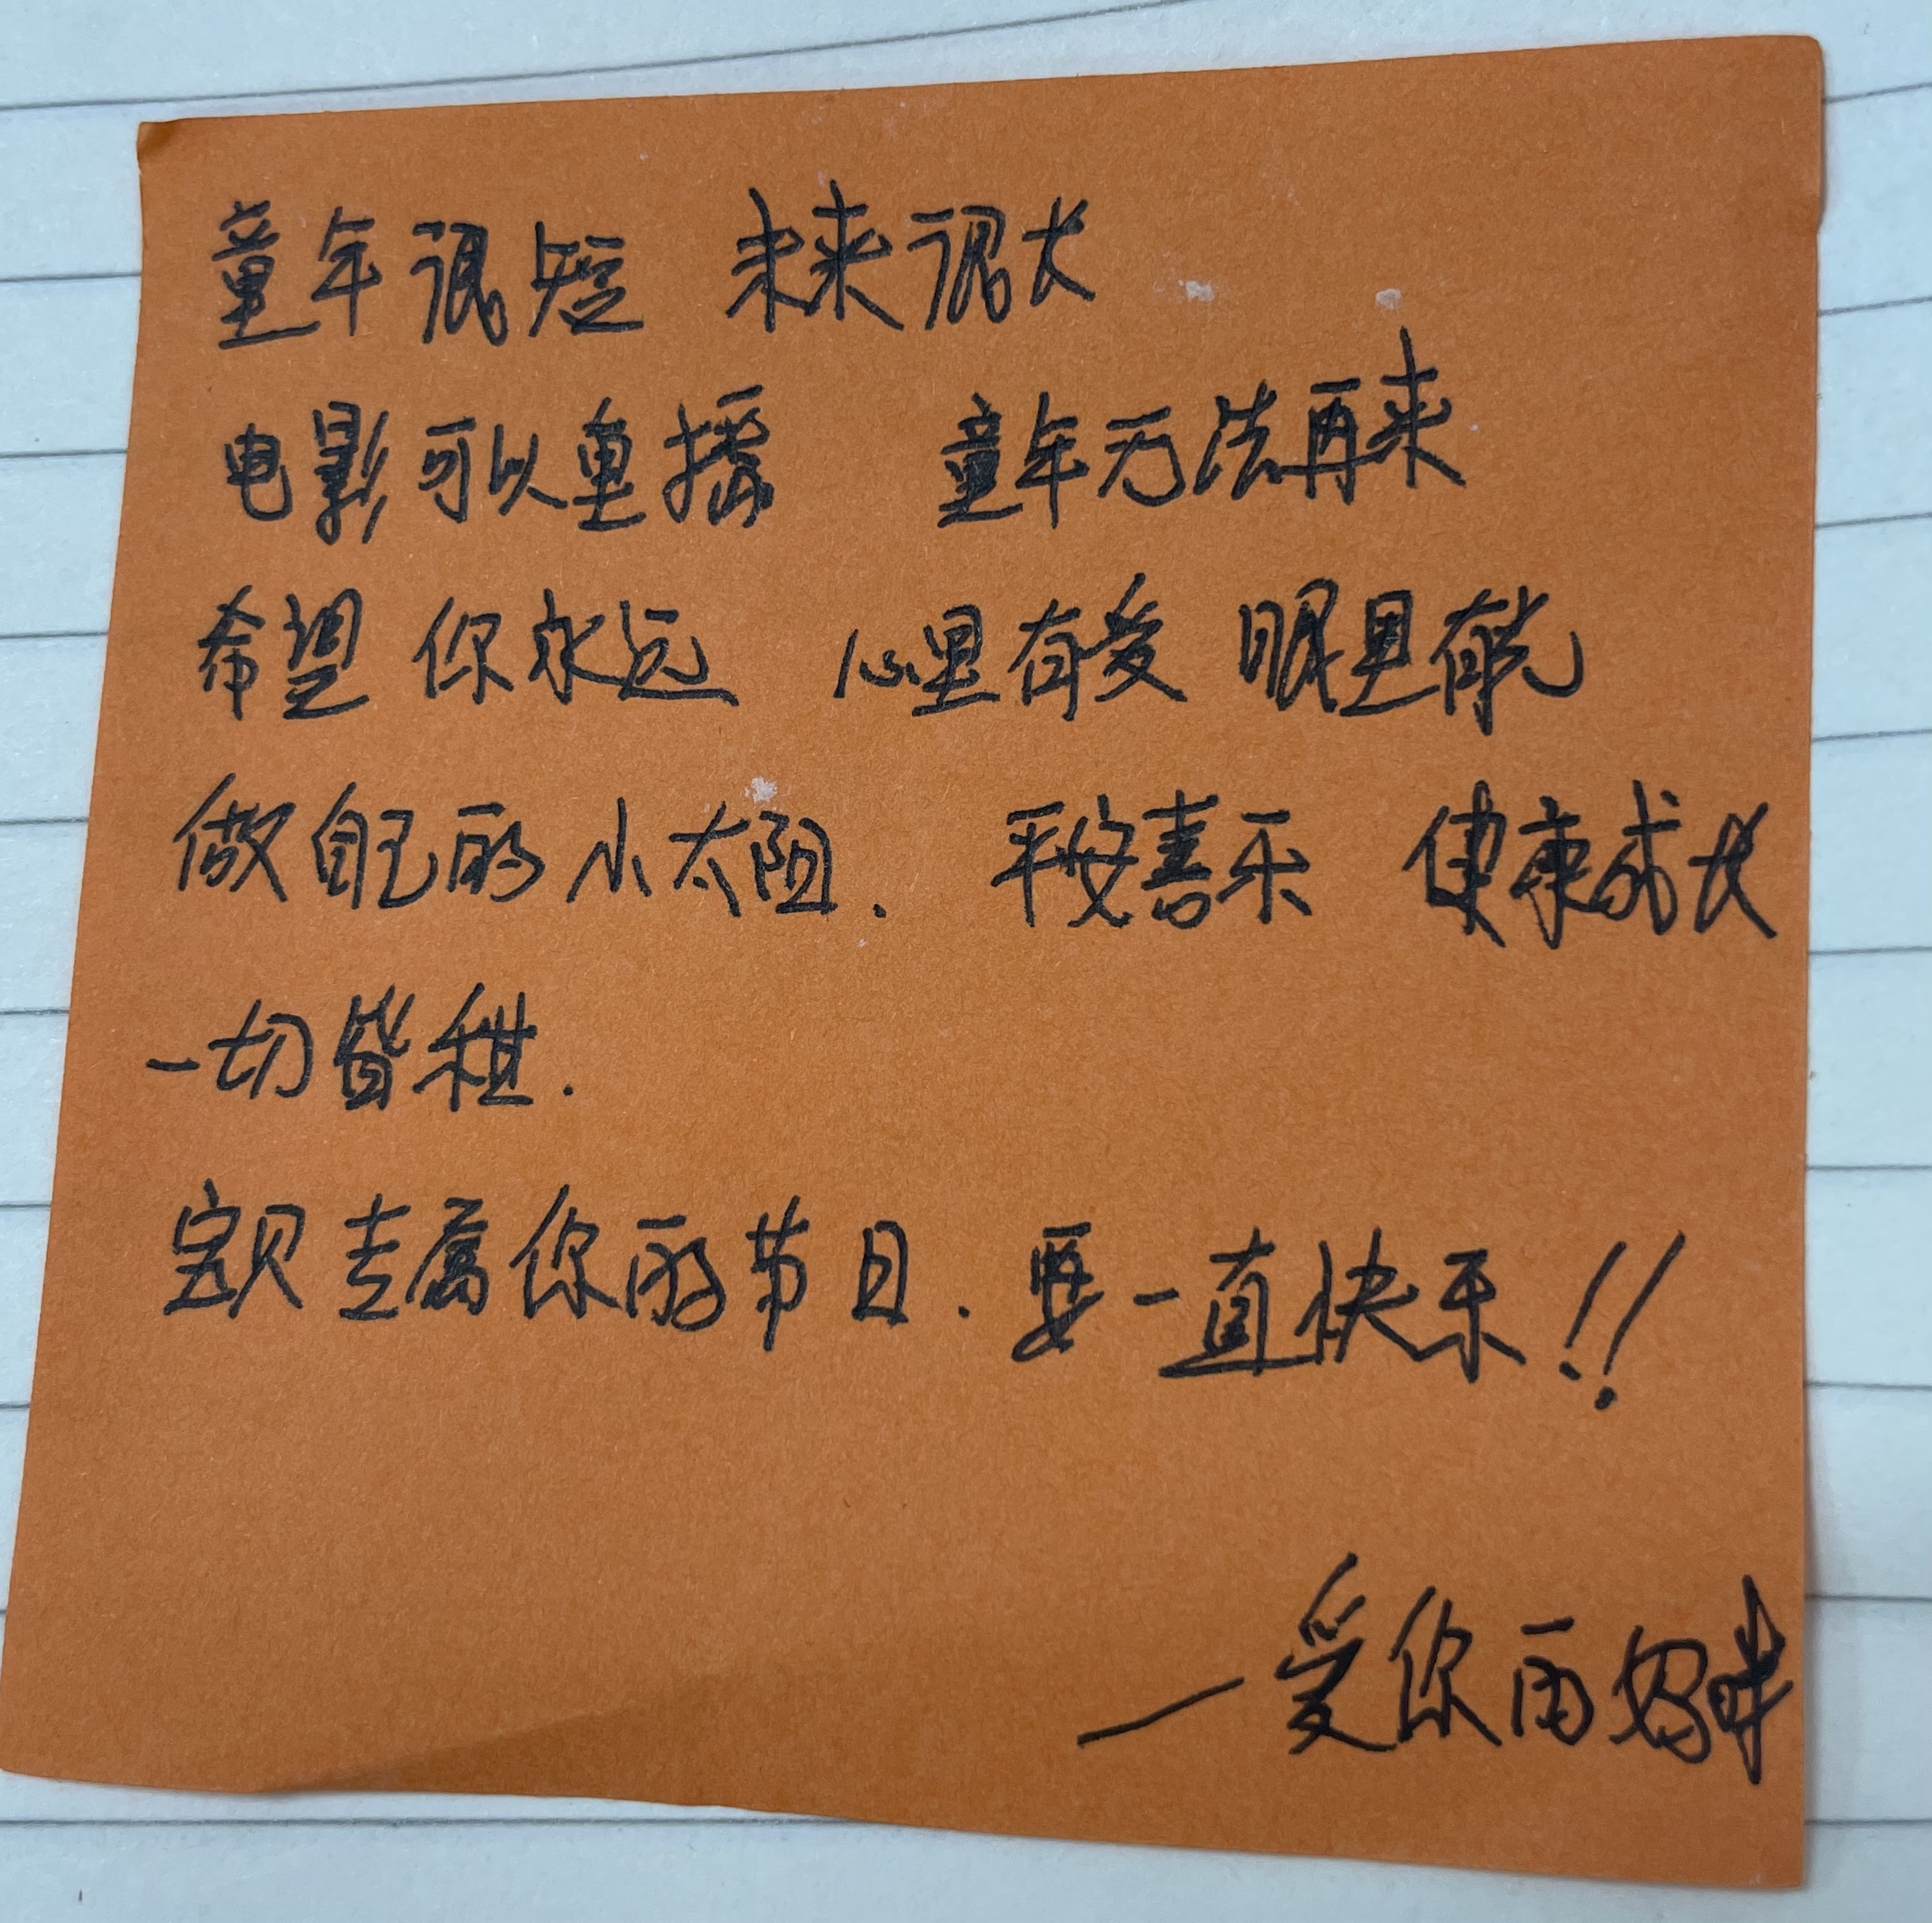 童年很短 未来很长
电影可以重播 童年无法再来
希望你永远 心里有爱 眼里有光
做自己的小太阳. 平安喜乐 健康成长
一切皆棋.
宝贝专属你的节日. 要一直快乐!!
—爱你的妈咪